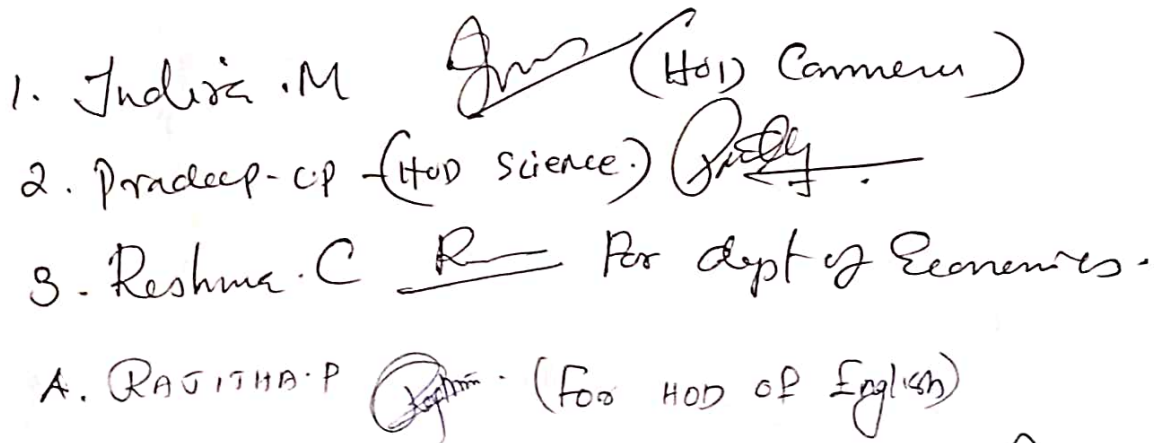 1. Indira .M (HOD Commerce)
2. Pradeep - C.P - (HOD Science.)
3. Reshma . C R For dept of Economics.
4. RAJITHA.P (For HOD of English)